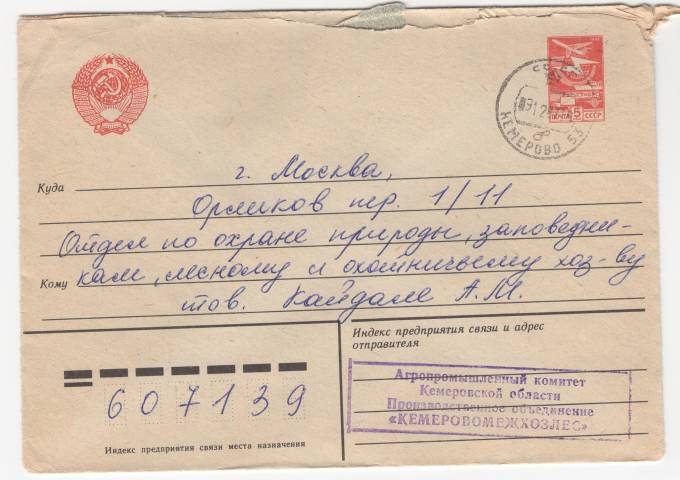 ПОЧТА 5 СССР
КЕМЕРОВО 53
Куда
г. Москва,
Орликов пер. 1/11
Отдел по охране природы, заповедни-
Кому
кам, лесному и охотничьему хоз-ву
тов. Кайдале А.М.
Индекс предприятия связи и адрес
отправителя
Агропромышленный комитет
Кемеровской области
Производственное объединение
«КЕМЕРОВОМЕЖХОЗЛЕС»
607139
Индекс предприятия связи места назначения